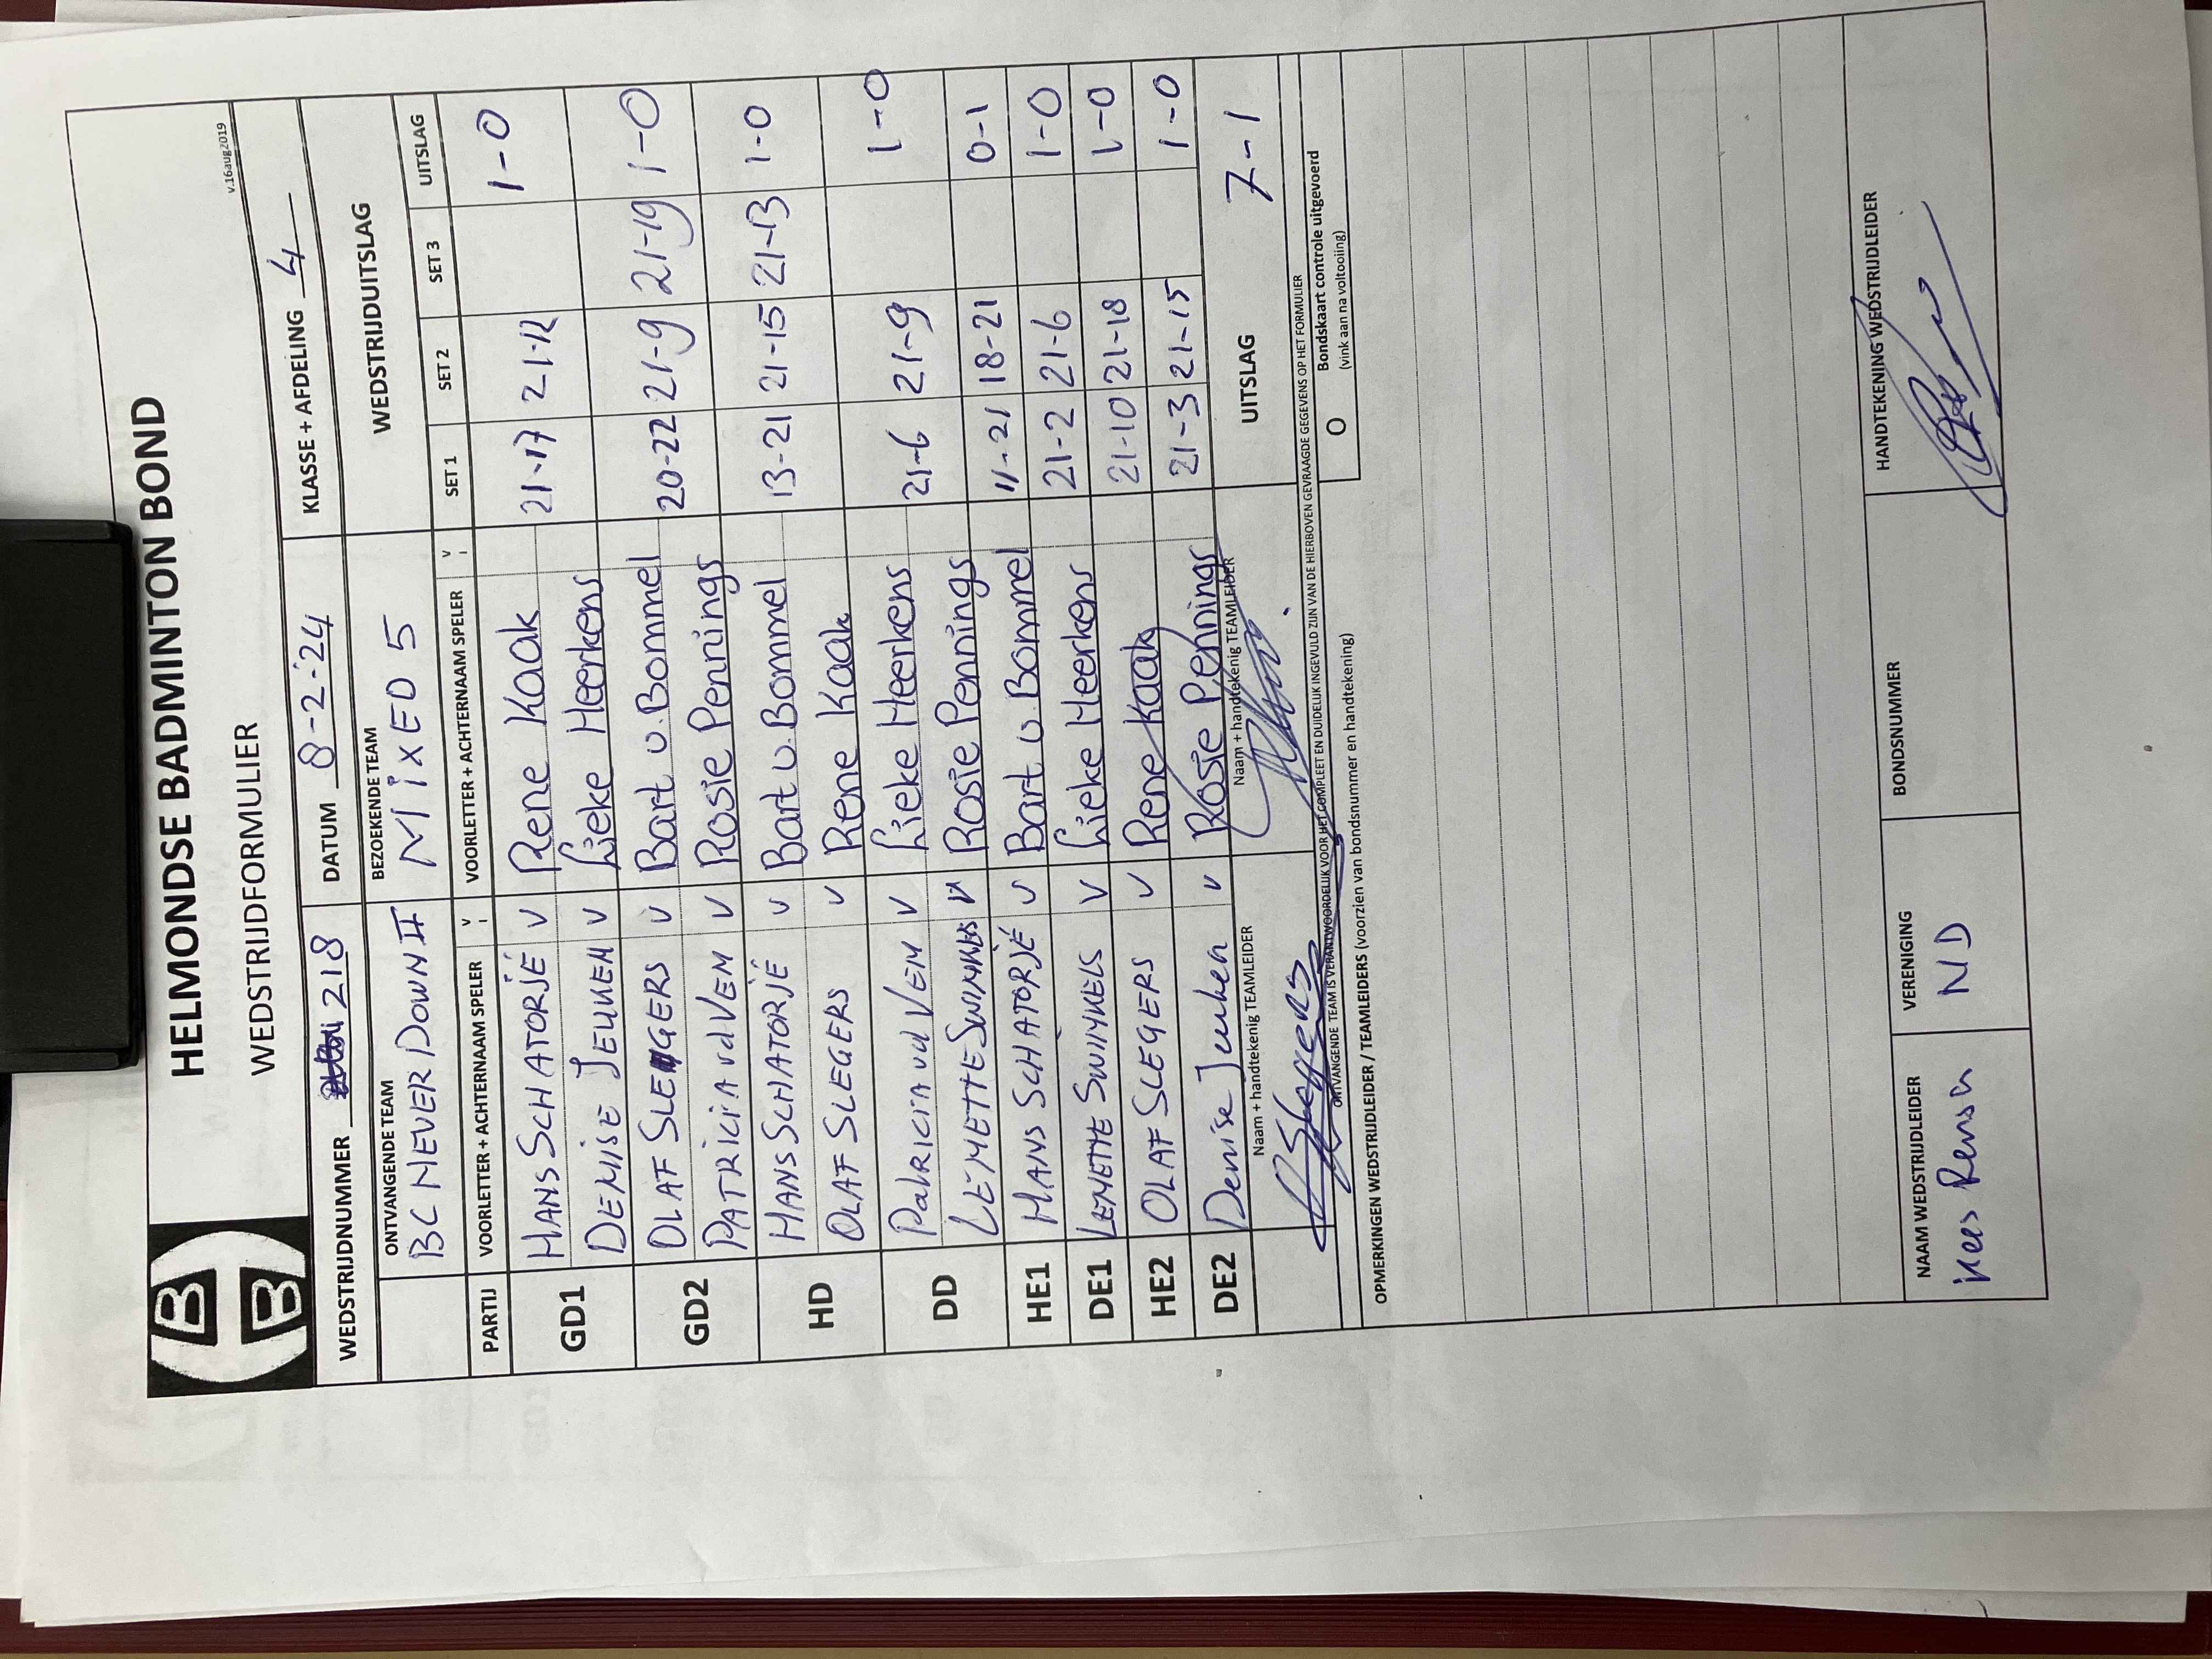 HELMONDSE BADMINTON BOND
WEDSTRIJDFORMULIER
v.16aug2019
WEDSTRIJDNUMMER 218 DATUM 8-2-'24 KLASSE + AFDELING 4
ONTVANGENDE TEAM BEZOEKENDE TEAM WEDSTRIJDUITSLAG
BC NEVER DOWN II MIXED 5
PARTIJ VOORLETTER + ACHTERNAAM SPELER V VOORLETTER + ACHTERNAAM SPELER V SET 1 SET 2 SET 3 UITSLAG
GD1 HANS SCHATORJÉ V Rene Kaak 21-17 21-12 1-0
DENISE JEUKEN V Lieke Heerkens
GD2 OLAF SLEGERS V Bart v. Bommel 20-22 21-9 21-19 1-0
PATRICIA vd VEN V Rosie Pennings
HD HANS SCHATORJÉ V Bart v. Bommel 13-21 21-15 21-13 1-0
OLAF SLEGERS V Rene Kaak
DD PATRICIA vd VEN V Lieke Heerkens 21-6 21-9 1-0
LENETTE SWINKELS V Rosie Pennings 11-21 18-21 0-1
HE1 HANS SCHATORJÉ V Bart v. Bommel 21-2 21-6 1-0
DE1 LENETTE SWINKELS V Lieke Heerkens 21-10 21-18 1-0
HE2 OLAF SLEGERS V Rene Kaak 21-3 21-15 1-0
DE2 Denise Jeuken V Rosie Pennings
Naam + handtekenig TEAMLEIDER Naam + handtekenig TEAMLEIDER UITSLAG 7-1
O Slegers
ONTVANGENDE TEAM IS VERANTWOORDELIJK VOOR HET COMPLEET EN DUIDELIJK INGEVULD ZIJN VAN DE HIERBOVEN GEVRAAGDE GEGEVENS OP HET FORMULIER
O Bondskaart controle uitgevoerd
(vink aan na voltooiing)
OPMERKINGEN WEDSTRIJDLEIDER / TEAMLEIDERS (voorzien van bondsnummer en handtekening)
NAAM WEDSTRIJDLEIDER VERENIGING BONDSNUMMER HANDTEKENING WEDSTRIJDLEIDER
Kees Rensen ND